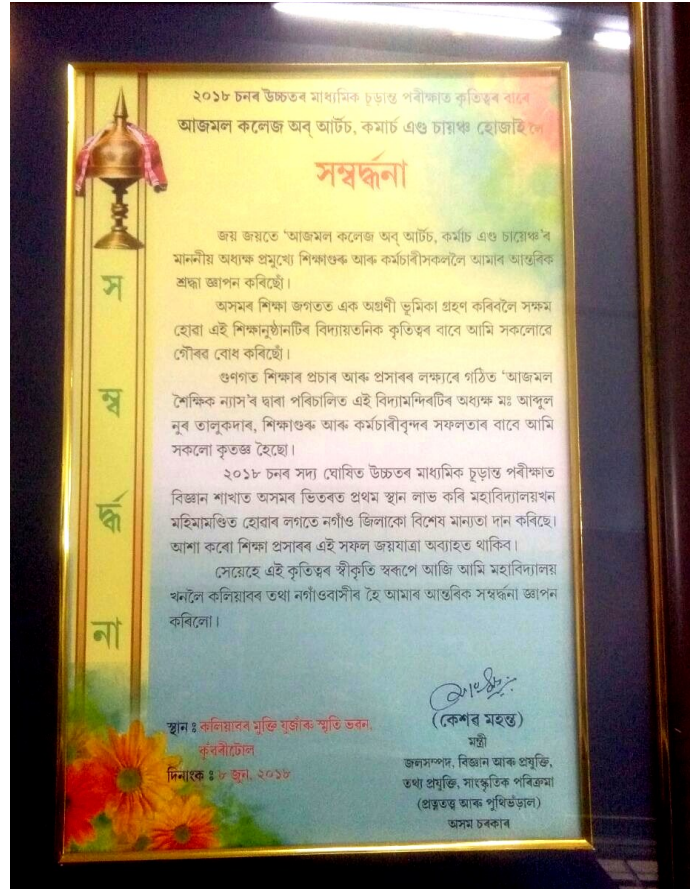 ২০১৮ চনৰ উচ্চতৰ মাধ্যমিক চূড়ান্ত পৰীক্ষাত কৃতিত্বৰ বাবে
আজমল কলেজ অব্ আৰ্টচ, কমাৰ্চ এণ্ড চায়েঞ্চ হোজাই লৈ
সম্বৰ্দ্ধনা
জয় জয়তে ‘আজমল কলেজ অব্ আৰ্টচ, কৰ্মাচ এণ্ড চায়েঞ্চ’ৰ
মাননীয় অধ্যক্ষ প্ৰমুখ্যে শিক্ষাগুৰু আৰু কৰ্মচাৰীসকললৈ আমাৰ আন্তৰিক
শ্ৰদ্ধা জ্ঞাপন কৰিছোঁ।
অসমৰ শিক্ষা জগতত এক অগ্ৰণী ভূমিকা গ্ৰহণ কৰিবলৈ সক্ষম
হোৱা এই শিক্ষানুষ্ঠানটিৰ বিদ্যায়তনিক কৃতিত্বৰ বাবে আমি সকলোৱে
গৌৰৱ বোধ কৰিছোঁ।
গুণগত শিক্ষাৰ প্ৰচাৰ আৰু প্ৰসাৰৰ লক্ষ্যৰে গঠিত ‘আজমল
শৈক্ষিক ন্যাস’ৰ দ্বাৰা পৰিচালিত এই বিদ্যামন্দিৰটিৰ অধ্যক্ষ মঃ আব্দুল
নুৰ তালুকদাৰ, শিক্ষাগুৰু আৰু কৰ্মচাৰীবৃন্দৰ সফলতাৰ বাবে আমি
সকলো কৃতজ্ঞ হৈছো।
২০১৮ চনৰ সদ্য ঘোষিত উচ্চতৰ মাধ্যমিক চূড়ান্ত পৰীক্ষাত
বিজ্ঞান শাখাত অসমৰ ভিতৰত প্ৰথম স্থান লাভ কৰি মহাবিদ্যালয়খন
মহিমামণ্ডিত হোৱাৰ লগতে নগাঁও জিলাকো বিশেষ মান্যতা দান কৰিছে।
আশা কৰো শিক্ষা প্ৰসাৰৰ এই সফল জয়যাত্ৰা অব্যাহত থাকিব।
সেয়েহে এই কৃতিত্বৰ স্বীকৃতি স্বৰূপে আজি আমি মহাবিদ্যালয়
খনলৈ কলিয়াবৰ তথা নগাঁওবাসীৰ হৈ আমাৰ আন্তৰিক সম্বৰ্দ্ধনা জ্ঞাপন
কৰিলো।
স
ম্ব
ৰ্দ্ধ
না
স্থান : কলিয়াবৰ মুক্তি যুঁজাৰু স্মৃতি ভৱন,
কুঁৱৰীটোল
দিনাংক : ৮ জুন, ২০১৮
(কেশৱ মহন্ত)
মন্ত্ৰী
জলসম্পদ, বিজ্ঞান আৰু প্ৰযুক্তি,
তথ্য প্ৰযুক্তি, সাংস্কৃতিক পৰিক্ৰমা
(প্ৰত্নতত্ত্ব আৰু পুথিভঁড়াল)
অসম চৰকাৰ